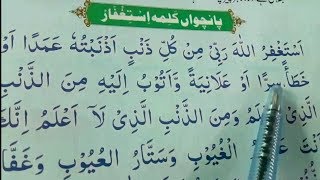 پانچواں کلمہ اِستغفار
اَسْتَغْفِرُ اللّٰهَ رَبِّیْ مِنْ کُلِّ ذَنْۢبٍ اَذْنَبْتُهٗ عَمَدًا اَوْ
خَطَأً سِرًّا اَوْ عَلَانِیَةً وَّاَتُوْبُ اِلَیْهِ مِنَ الذَّنْۢبِ
الَّذِیْ اَعْلَمُ وَمِنَ الذَّنْۢبِ الَّذِیْ لَاۤ اَعْلَمُ اِنَّكَ
اَنْتَ الْغُیُوْبِ وَسَتَّارُ الْعُیُوْبِ وَغَفَّا